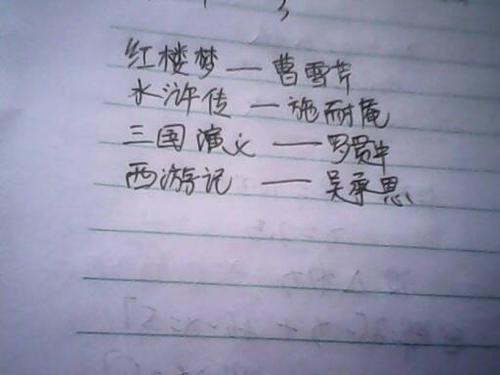 红楼梦—曹雪芹
水浒传—施耐庵
三国演义—罗贯中
西游记—吴承恩